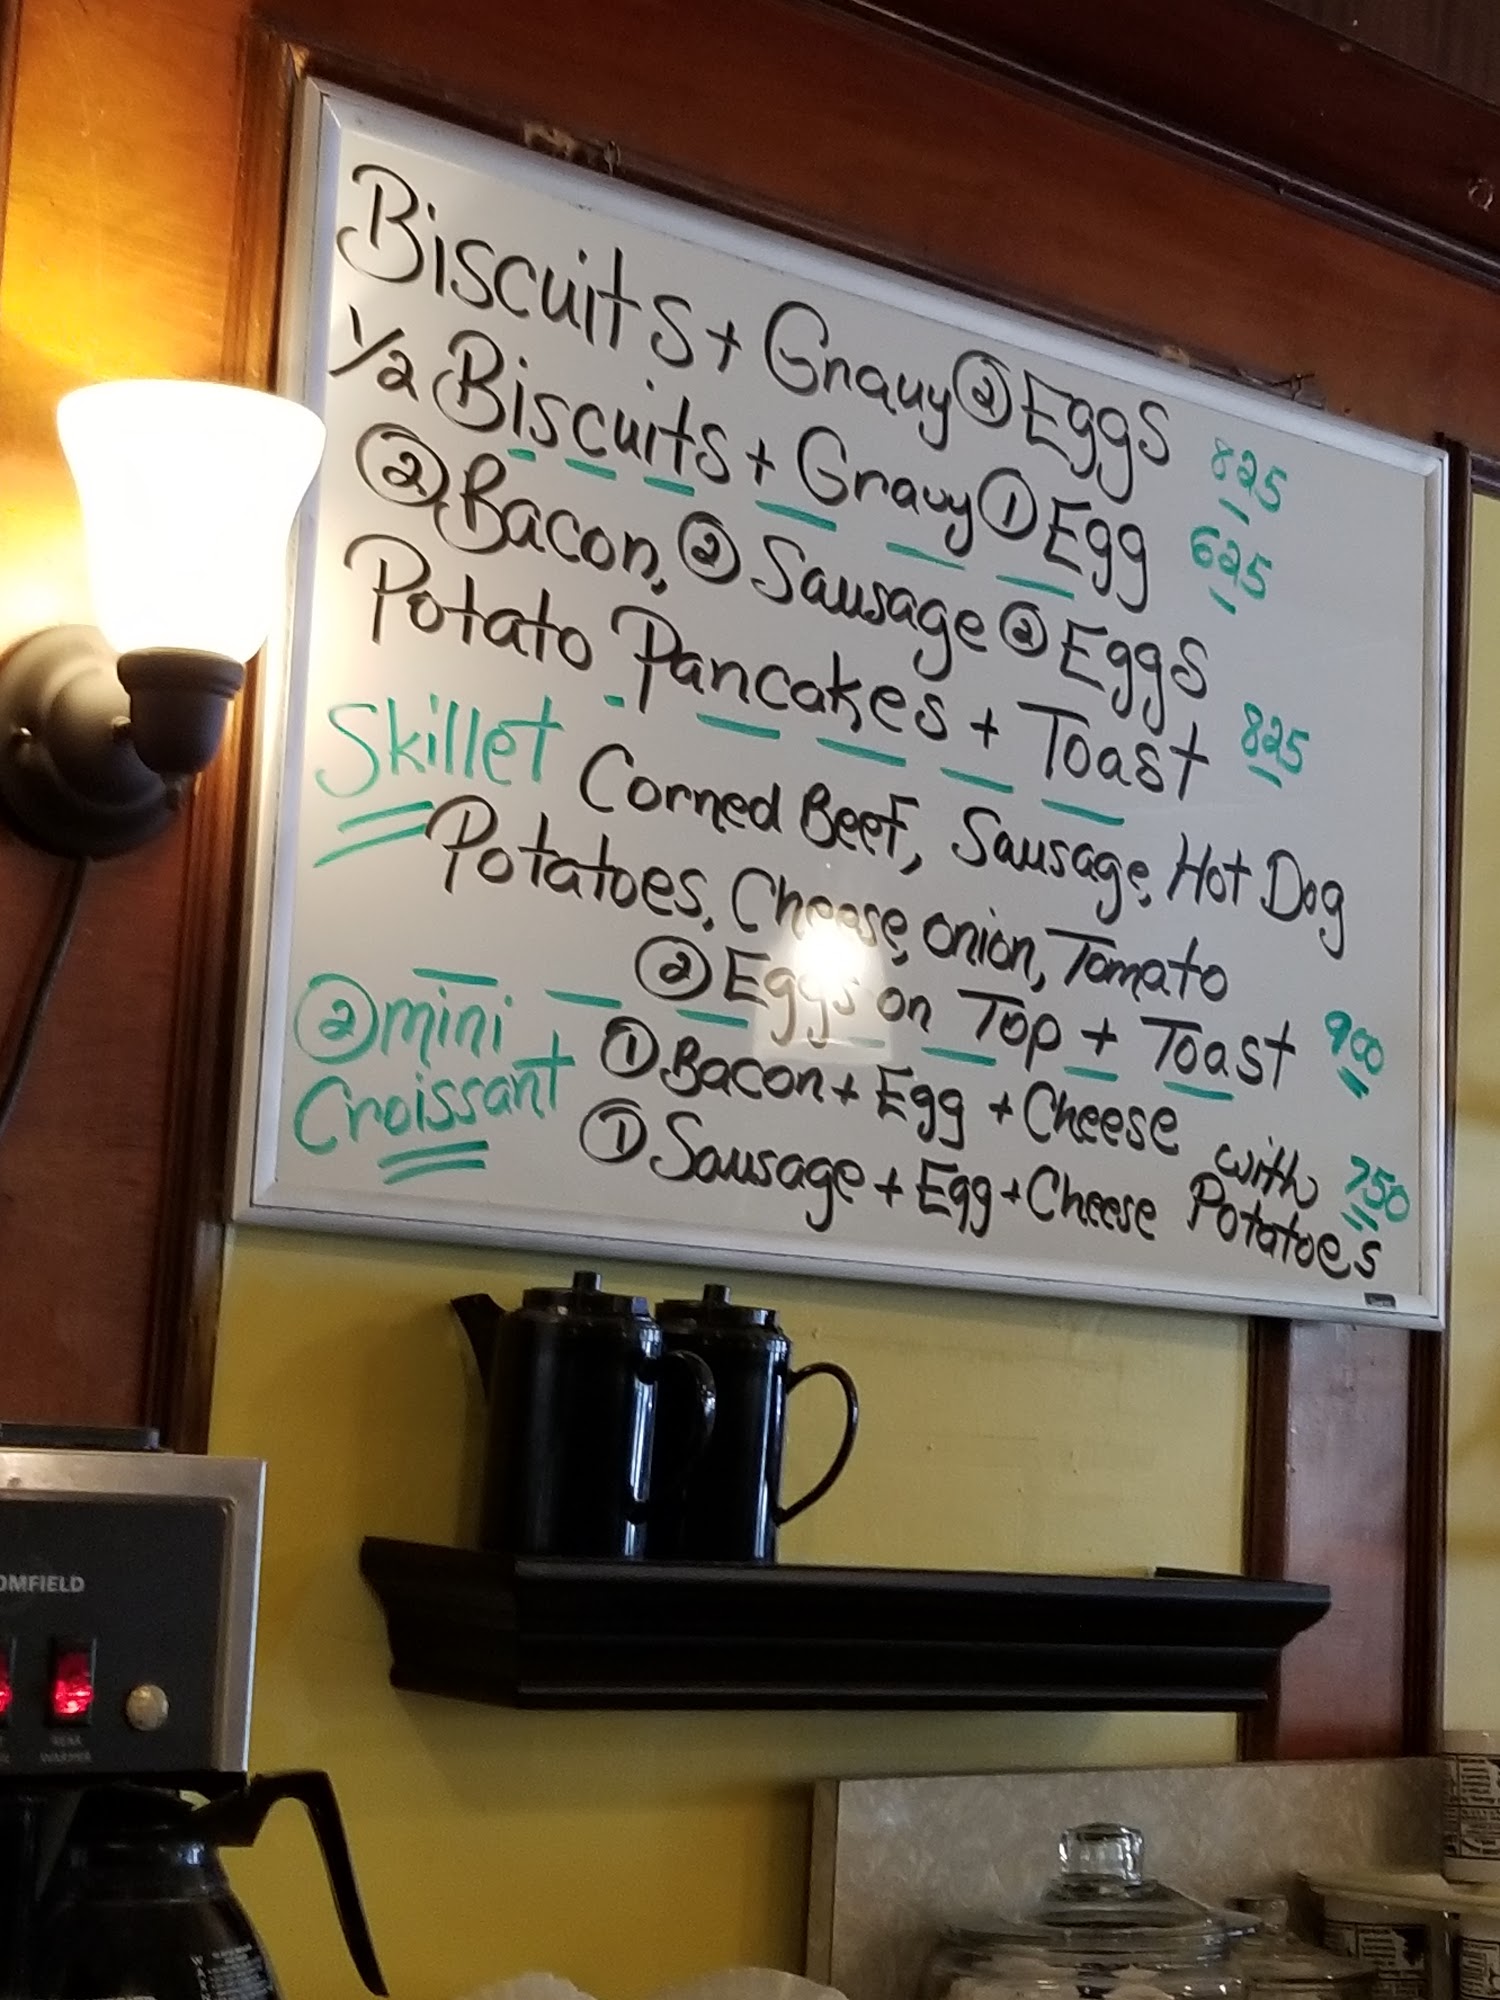 Biscuits + Gravy ② Eggs 825
1/2 Biscuits + Gravy ① Egg 625
② Bacon, ② Sausage ② Eggs
Potato Pancakes + Toast 825
Skillet Corned Beef, Sausage, Hot Dog
Potatoes, Cheese, onion, Tomato
② Eggs on Top + Toast 900
② mini ① Bacon + Egg + Cheese with 750
Croissant ① Sausage + Egg + Cheese Potatoes
OMFIELD
REAR
WARMER